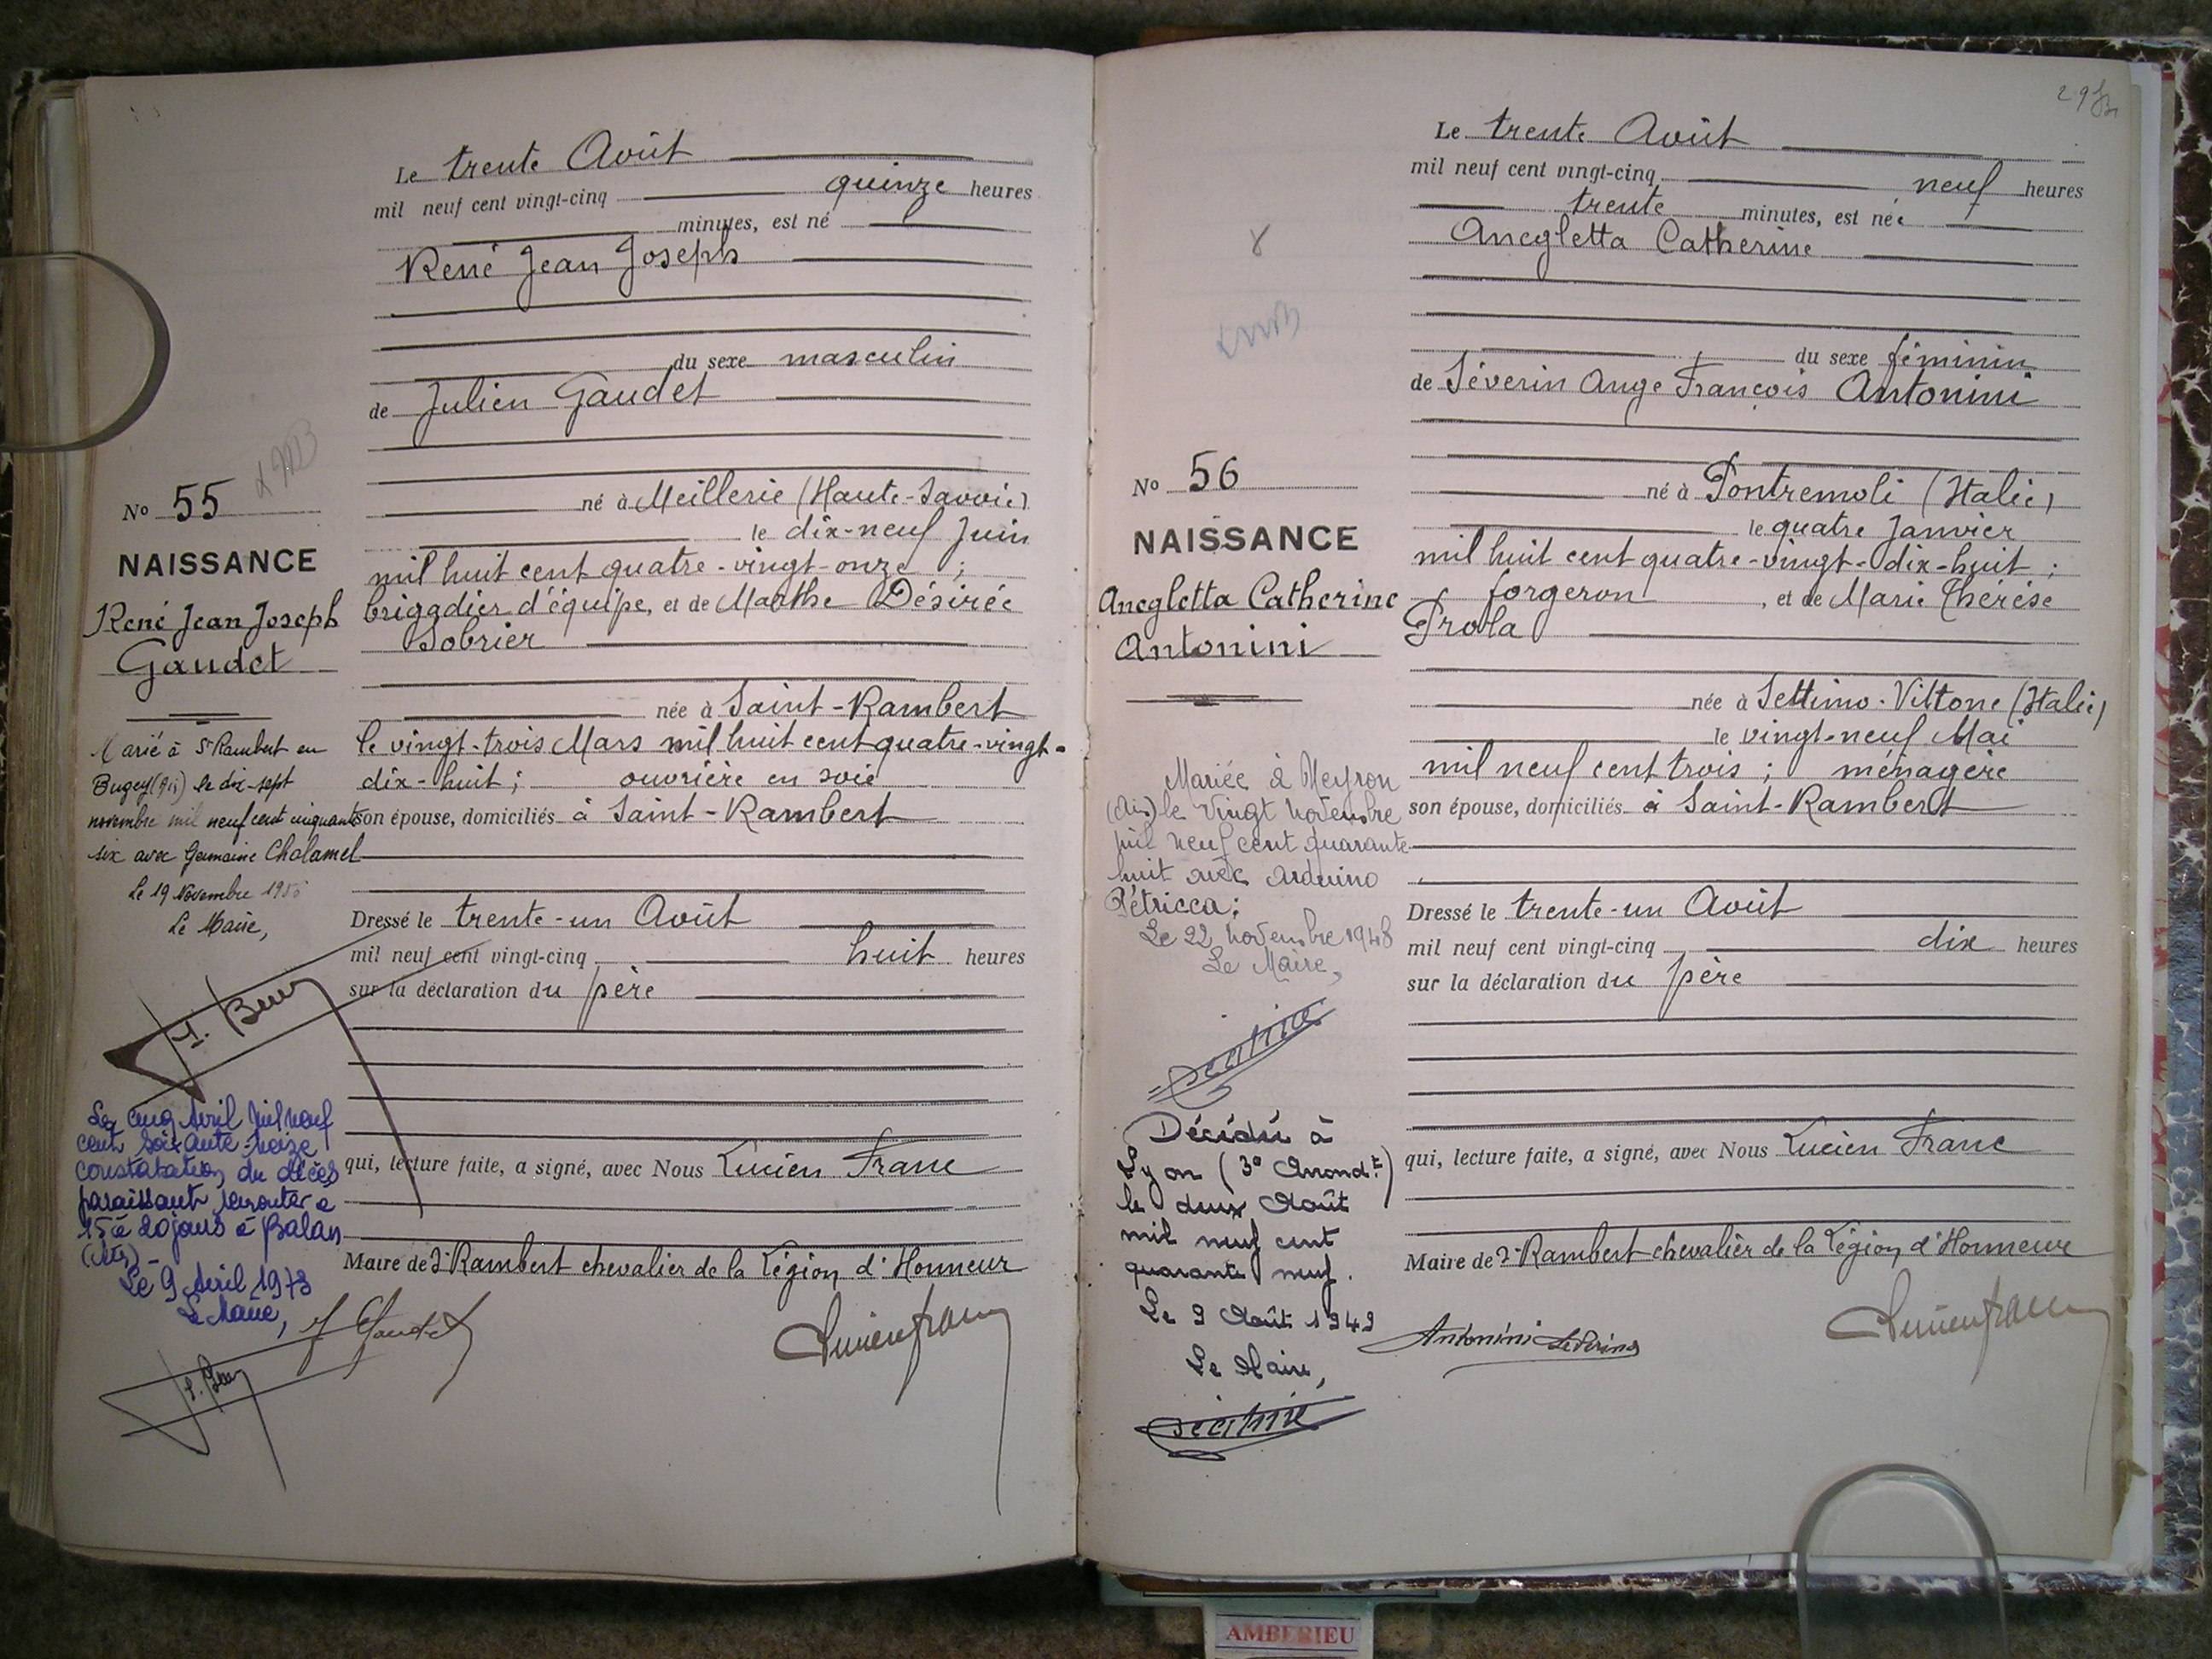 Le trente Août
mil neuf cent vingt-cinq quinze heures
minutes, est né
René Jean Joseph
du sexe masculin
de Julien Gaudet
né à Meillerie (Haute-Savoie)
le dix-neuf Juin
mil huit cent quatre-vingt-onze ;
brigadier d'équipe, et de Marthe Désirée
Sobrier
née à Saint-Rambert
le vingt-trois Mars mil huit cent quatre-vingt-
dix-huit ; ouvrière en soie
son épouse, domiciliés à Saint-Rambert
Dressé le trente-un Août
mil neuf cent vingt-cinq huit heures
sur la déclaration du père
qui, lecture faite, a signé, avec Nous Lucien Franc
Maire de St Rambert chevalier de la Légion d'Honneur
J Gaudet
Lucien franc
No 55
NAISSANCE
René Jean Joseph
Gaudet
Marié à St Rambert en
Bugey (Ain) le dix-sept
novembre mil neuf cent cinquante
six avec Germaine Chalamel
Le 19 Novembre 195
Le Maire,
Le cinq Avril mil neuf
cent soixante-treize
constatation du décès
paraissant remonter à
15 à 20 jours à Balan
(Ain)-
Le 9 Avril 1973
Le Maire,
29
Le trente Août
mil neuf cent vingt-cinq neuf heures
trente minutes, est née
Anegletta Catherine
du sexe féminin
de Séverin Ange François Antonini
né à Pontremoli (Italie)
le quatre Janvier
mil huit cent quatre-vingt-dix-huit ;
forgeron, et de Marie Thérèse
Prola
née à Settimo-Vittone (Italie)
le vingt-neuf Mai
mil neuf cent trois ; ménagère
son épouse, domiciliés à Saint-Rambert
Dressé le trente-un Août
mil neuf cent vingt-cinq dix heures
sur la déclaration du père
qui, lecture faite, a signé, avec Nous Lucien Franc
Maire de St Rambert chevalier de la Légion d'Honneur
Antonini Severino
Lucien franc
No 56
NAISSANCE
Anegletta Catherine
Antonini
Mariée à Neyron
(Ain) le vingt novembre
mil neuf cent quarante
huit avec Arduino
Pétricca;
Le 22 novembre 1948
Le Maire,
Décédée à
Lyon (3e Arrondt)
le deux Août
mil neuf cent
quarante neuf.
Le 9 Août 1949
Le Maire,
AMBERIEU